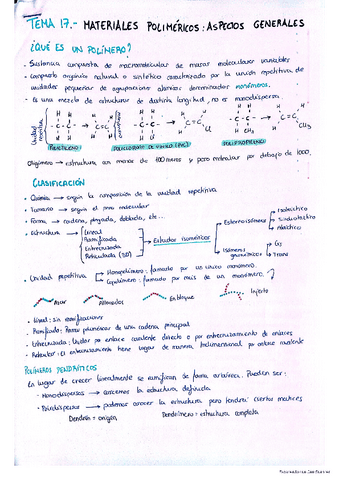 TEMA 17.- MATERIALES POLIMÉRICOS: ASPECTOS GENERALES
¿QUÉ ES UN POLÍMERO?
· Sustancia compuesta de macromoléculas de masas moleculares variables
· Compuesto orgánico natural o sintético caracterizado por la unión repetitiva de
unidades pequeñas de agrupaciones atómicas denominadas monómeros.
· Es una mezcla de estructuras de distinta longitud, no es monodispersa.
POLIETILENO
POLICLORURO DE VINILO (PVC)
POLIPROPILENO
Oligómero → estructura con menos de monos y peso molecular por debajo de 1000.
CLASIFICACIÓN
· Química → según la composición de la unidad repetitiva
· Tamaño → según el peso molecular
· Forma → cadena, plegada, doblada, etc...
· Estructura → Lineal
Ramificada
Entrecruzada
Reticulada (3D)
Estudios isoméricos
Estereoisómeros
Isotáctico
Sindiotáctico
Atáctico
Isómeros geométricos
Cis
Trans
· Unidad repetitiva
Homopolímero: formado por un único monómero.
Copolímero: formado por más de un monómero.
Azar
Alternados
En bloque
Injerto
· Lineal: sin ramificaciones
· Ramificado: Ramas poliméricas de una cadena principal
· Entrecruzado: Unidos por enlace covalente directo o por entrecruzamiento de enlaces
· Reticular: El entrecruzamiento tiene lugar de manera tridimensional por enlace covalente
POLÍMEROS DENDRÍTICOS
En lugar de crecer linealmente se ramifican de forma arbórea. Pueden ser:
· Monodispersos → conocemos la estructura definida
· Polidispersos → podemos conocer la estructura pero tendrá ciertos matices
Dendrón = origen
Dendrímero = estructura completa